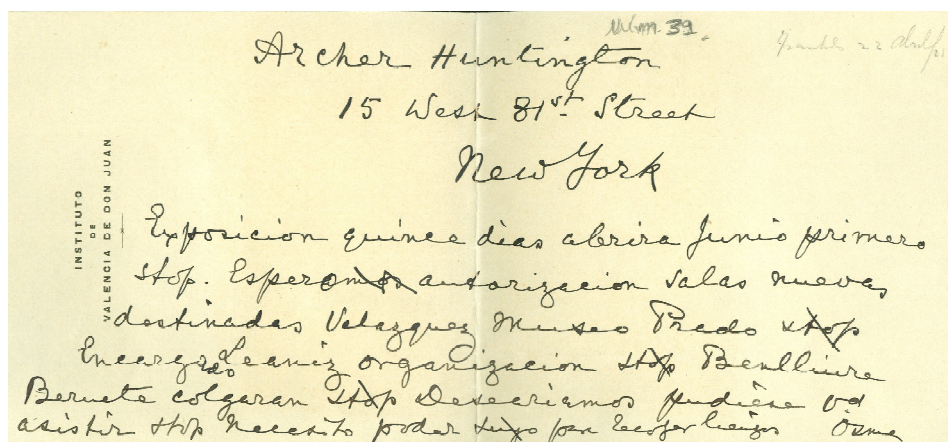 Archer Huntington
15 West 81st Street
New York
INSTITUTO
DE
VALENCIA DE DON JUAN
Exposicion quince dias abrira Junio primero
stop. Esperomos autorizacion salas nuevas
destinadas Velazquez Museo Prado stop
Encargado Leaniz organizacion stop Benlliure
Beruete colgaran stop Deseariamos pudiese vd
asistir stop necesito poder suyo por recoger lienzos Osma